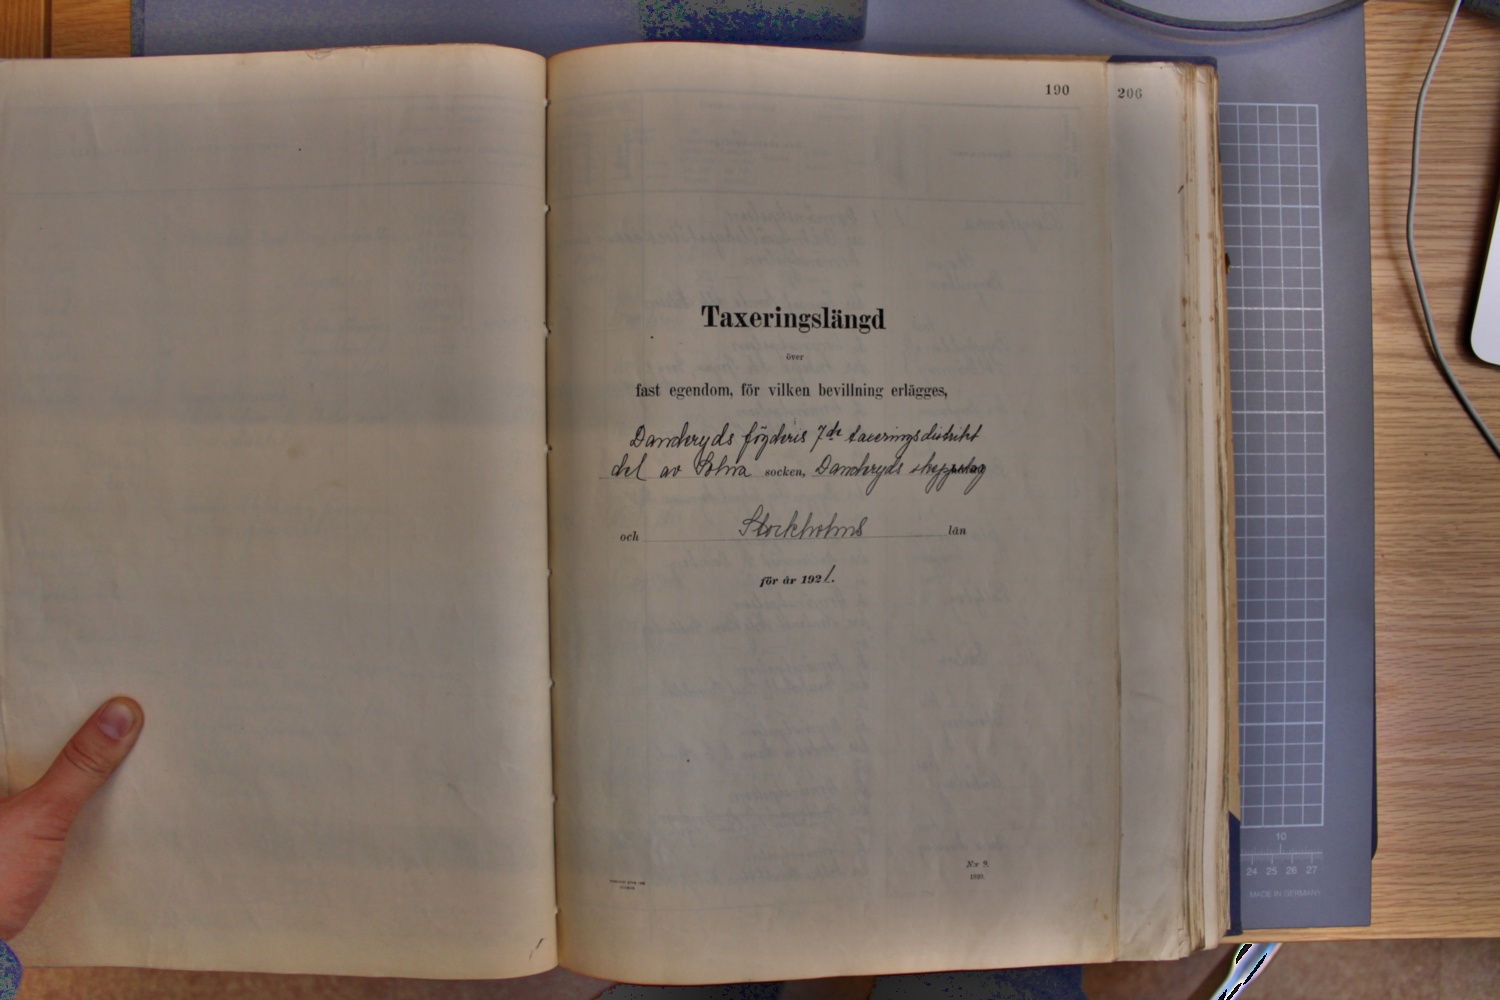 190
206
Taxeringslängd
över
fast egendom, för vilken bevillning erlägges,
Danderyds fögderis 7de taxeringsdistrikt
del av Solna socken, Danderyds skeppslag
och Stockholms län
för år 1921.
N:r 9.
1920.
10
24 25 26 27
MADE IN GERMANY